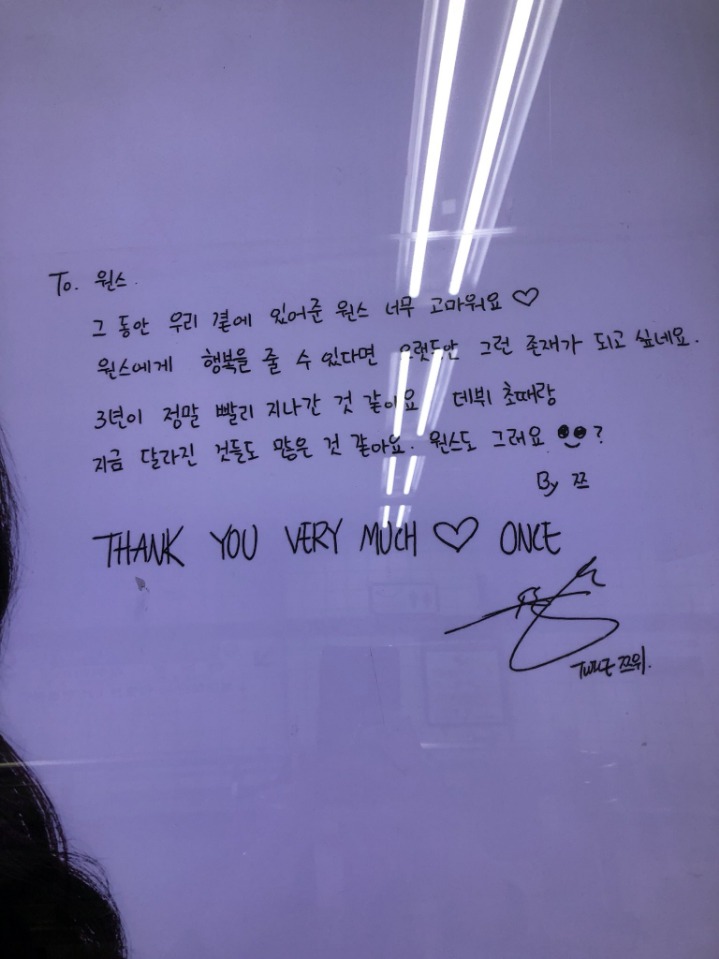 To. 원스.
그 동안 우리 곁에 있어준 원스 너무 고마워요 ♡
원스에게 행복을 줄 수 있다면 오랫동안 그런 존재가 되고 싶네요.
3년이 정말 빨리 지나간 것 같아요 데뷔 초때랑
지금 달라진 것들도 많은 것 같아요. 원스도 그러요 ?
By 쯔
THANK YOU VERY MUCH ♡ ONCE
TWICE 쯔위.